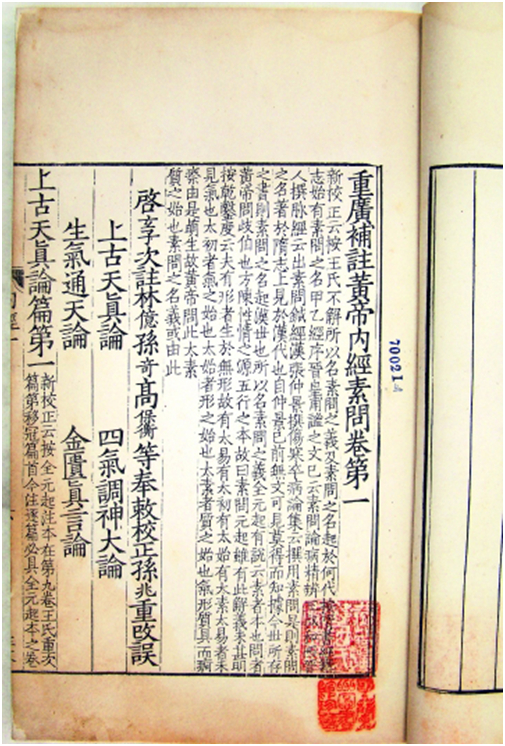 重廣補註黃帝内經素問卷第一
新校正云按王氏不解所以名素問之義及素問之名起於何代按隋書經籍
志始有素問之名甲乙經序晉皇甫謐之文已云素問論病精辨王叔和西晉
人撰脉經云出素問鍼經漢張仲景撰傷寒卒病論集云撰用素問是則素問
之名著於隋志上見於漢代也自仲景已前無文可見莫得而知據今世所存
之書則素問之名起漢世也所以名素問之義全元起有說云素者本也問者
黃帝問歧伯也方陳性情之源五行之本故曰素問元起雖有此解義未甚明
按乾鑿度云夫有形者生於無形故有太易有太初有太始有太素太易者未
見氣也太初者氣之始也太始者形之始也太素者質之始也氣形質具而痾
瘵由是萌生故黃帝問此太素
質之始也素問之名義或由此
啓玄子次註林億孫奇高保衡等奉敕校正孫兆重改誤
上古天眞論 四氣調神大論
生氣通天論 金匱眞言論
上古天眞論篇第一
新校正云按全元起注本在第九卷王氏重次
篇第移冠篇首今注逐篇必具全元起本之卷
内經一
700214